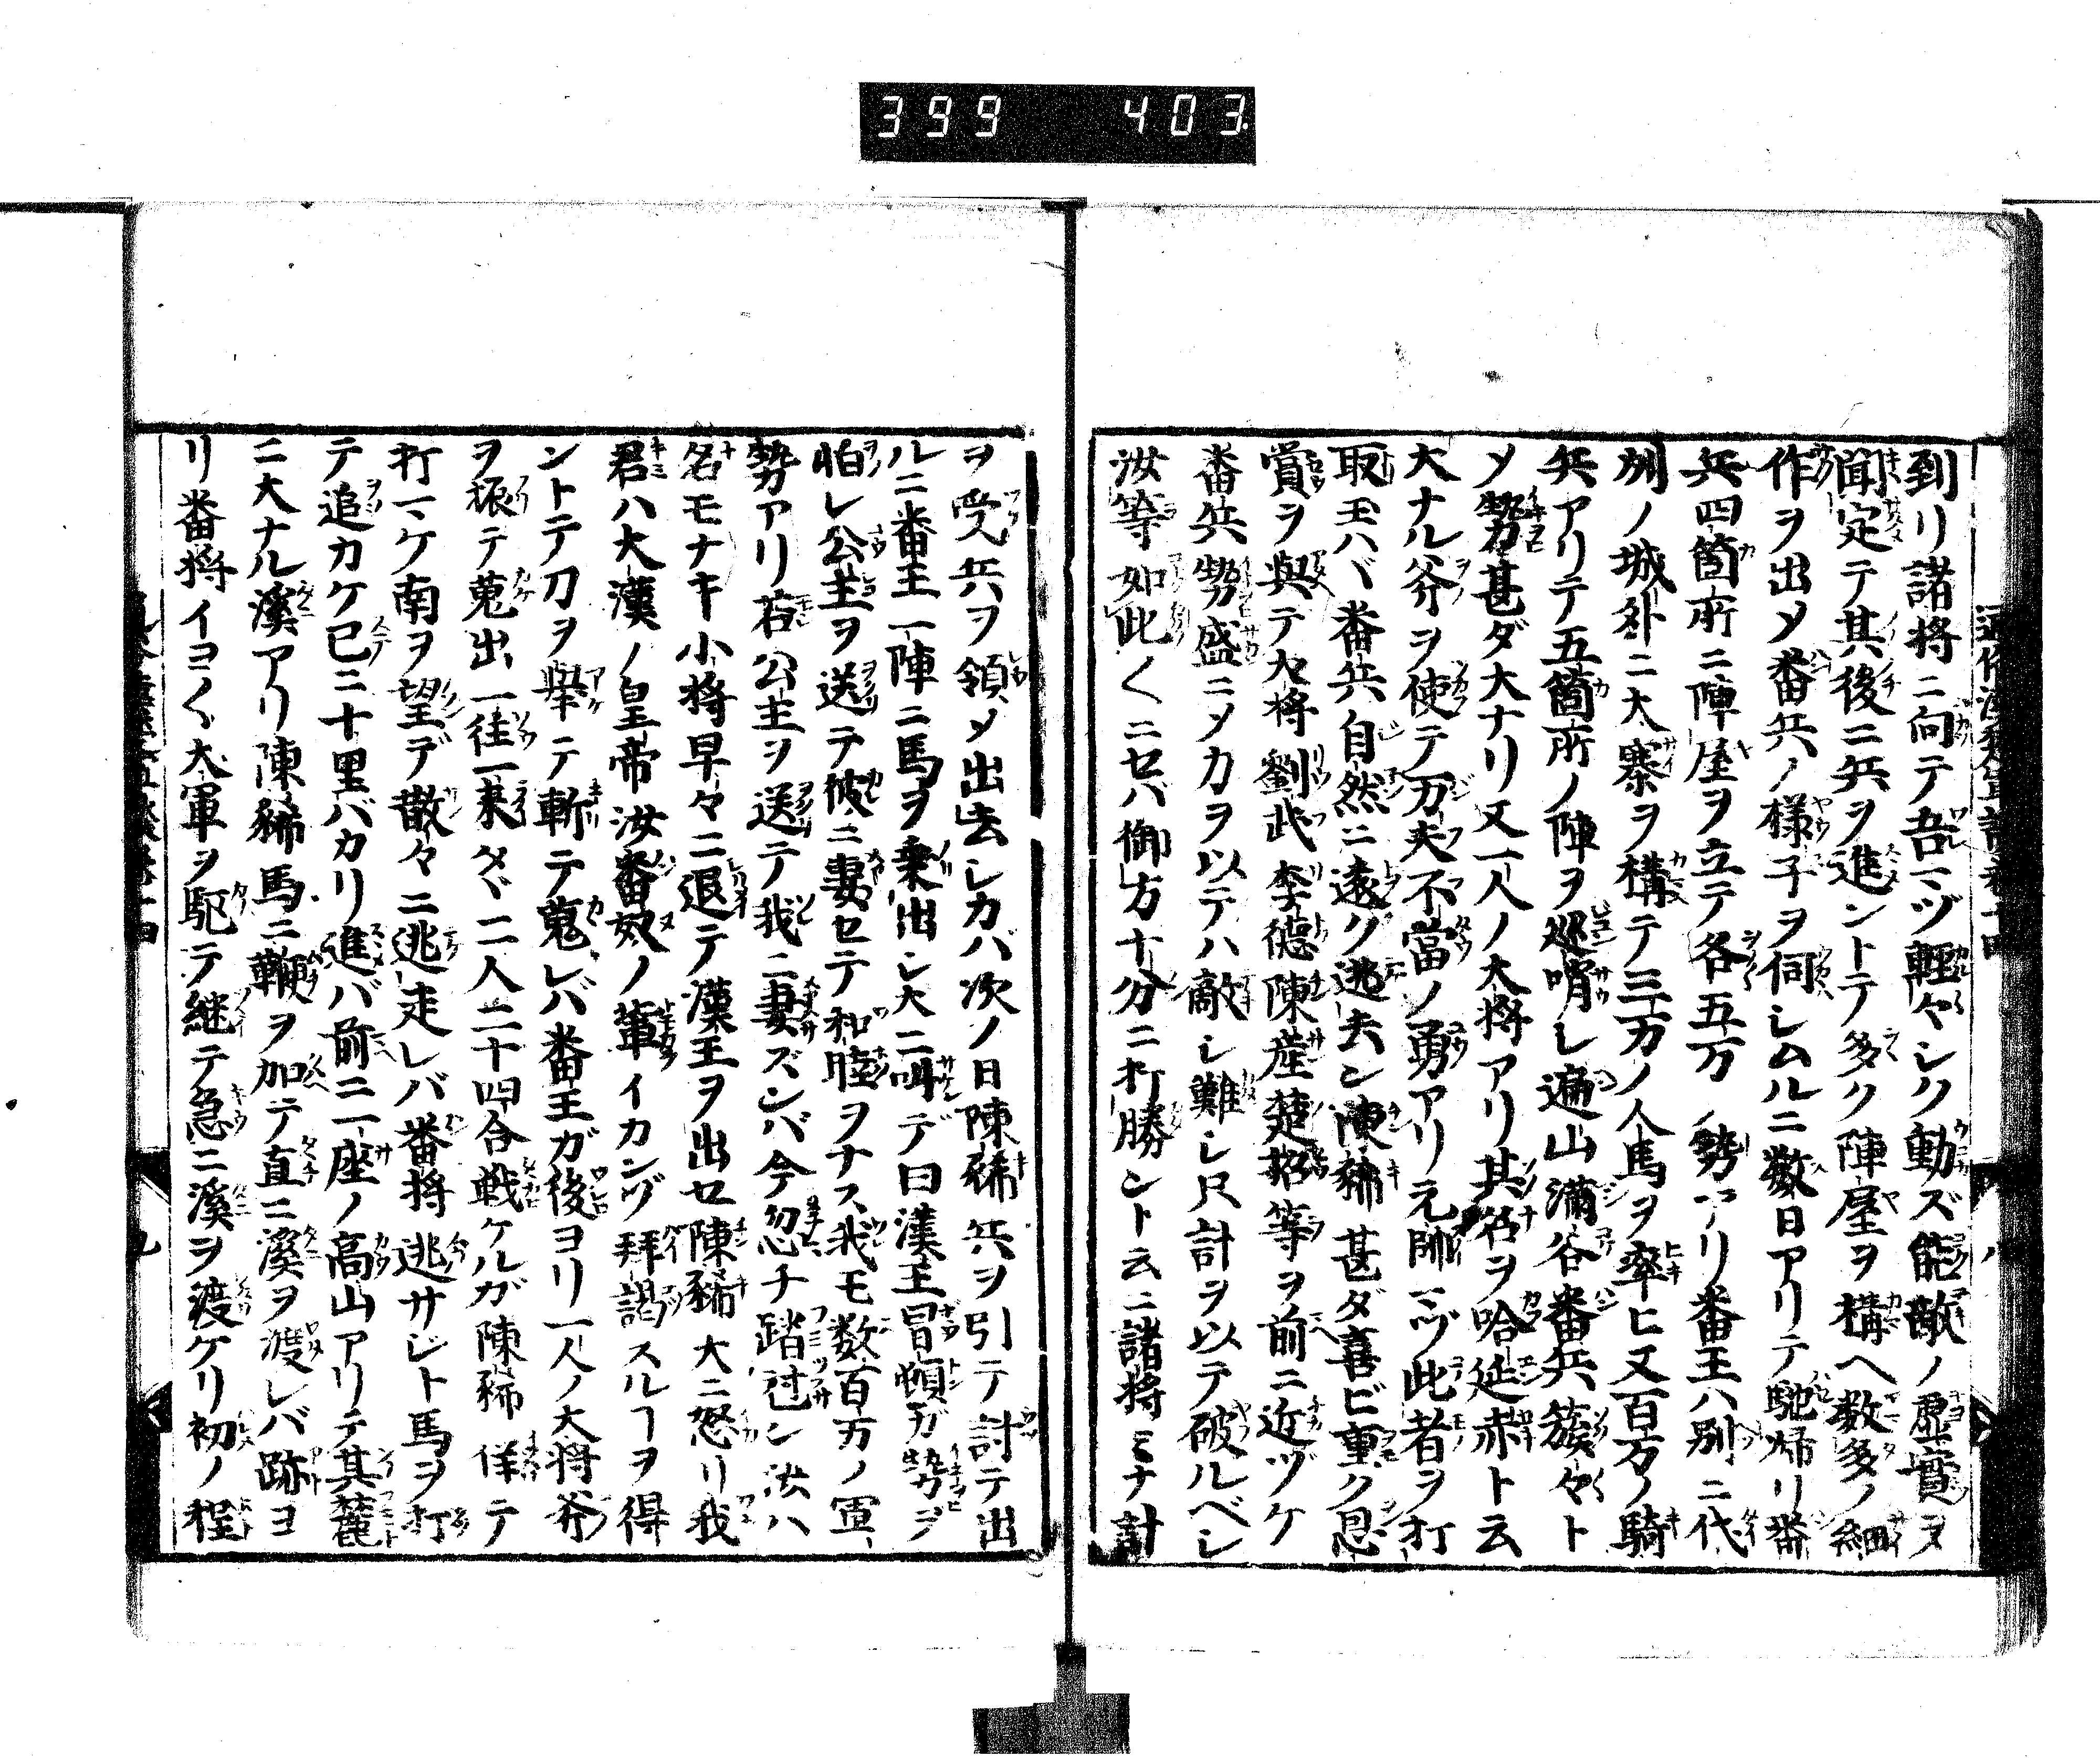 399 403
到リ諸将ニ向テ吾一ヅ輕々シク動ズ能敵ノ虚實ヲ
聞定テ其後ニ兵ヲ進ントテ多ク陣屋ヲ構ヘ数多ノ細
作ヲ出メ番兵ノ様子ヲ伺シムルニ数日アリテ馳帰リ番
兵四箇所ニ陣屋ヲ立テ各五万ノ勢アリ番王ハ別ニ代
州ノ城外ニ大寨ヲ構テ三万ノ人馬ヲ率ヒ又百万ノ騎
兵アリテ五箇所ノ陣ヲ巡哨シ遍山滿谷番兵簇々ト
メ勢甚ダ大ナリ又一人ノ大将アリ其名ヲ哈延赤ト云
大ナル斧ヲ使テ万夫不當ノ勇アリ元帥一ヅ此者ヲ打
取玉ハヾ番兵自然ニ遠ク逃去ン陳豨甚ダ喜ビ重ク恩
賞ヲ與テ大将劉武李德陳産楚招等ヲ前ニ近ヅケ
番兵勢盛ニメカヲ以テハ敵シ難シ只計ヲ以テ破ルベシ
汝等如此〱ニセバ御方十分ニ打勝ント云ニ諸将ミナ計
ヲ受兵ヲ領メ出去シカバ次ノ日陳豨兵ヲ引テ討テ出
ルニ番王一陣ニ馬ヲ乗出シ大ニ叫デ曰漢王冒頓ガ勢ヲ
怕レ公主ヲ送テ彼ニ妻セテ和睦ヲナス我モ数百万ノ軍
勢アリ若公主ヲ送テ我ニ妻ズンバ今忽チ踏過シ汝ハ
名モナキ小将早々ニ退テ漢王ヲ出セ陳豨大ニ怒リ我
君ハ大漢ノ皇帝汝番奴ノ軰イカンゾ拜謁スルヿヲ得
ントテ刀ヲ擧テ斬テ蒐レバ番王ガ後ヨリ一人ノ大将斧
ヲ振テ蒐出一往一来タヾ二人二十四合戦ケルガ陳豨佯テ
打一ケ南ヲ望デ散々ニ逃走レバ番将逃サジト馬ヲ打
テ追カケ已ニ十里バカリ進バ前ニ一座ノ高山アリテ其麓
ニ大ナル溪アリ陳豨馬ニ鞭ヲ加テ直ニ溪ヲ渡レバ跡ヨ
リ番将イヨ〱大軍ヲ駈テ継テ急ニ溪ヲ渡ケリ初ノ程